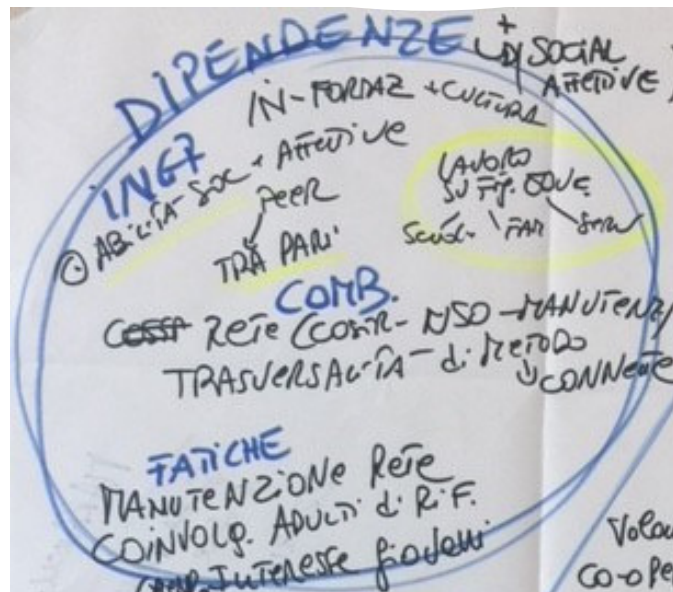 DIPENDENZE
+ SOCIAL
AFFETTIVE
IN-FORMAZ + CULTURA
INGR
ABILITÀ SOC + AFFETTIVE
PEER
TRA PARI
LAVORO
SU FIG. EDUC.
FAM
COMB.
RETE MANUTENZ
TRASVERSALITÀ di METODO
CONNETTE
FATICHE
MANUTENZIONE RETE
COINVOLG. ADULTI di RIF.
INTERESSE giovani
Volon
CO-OPE